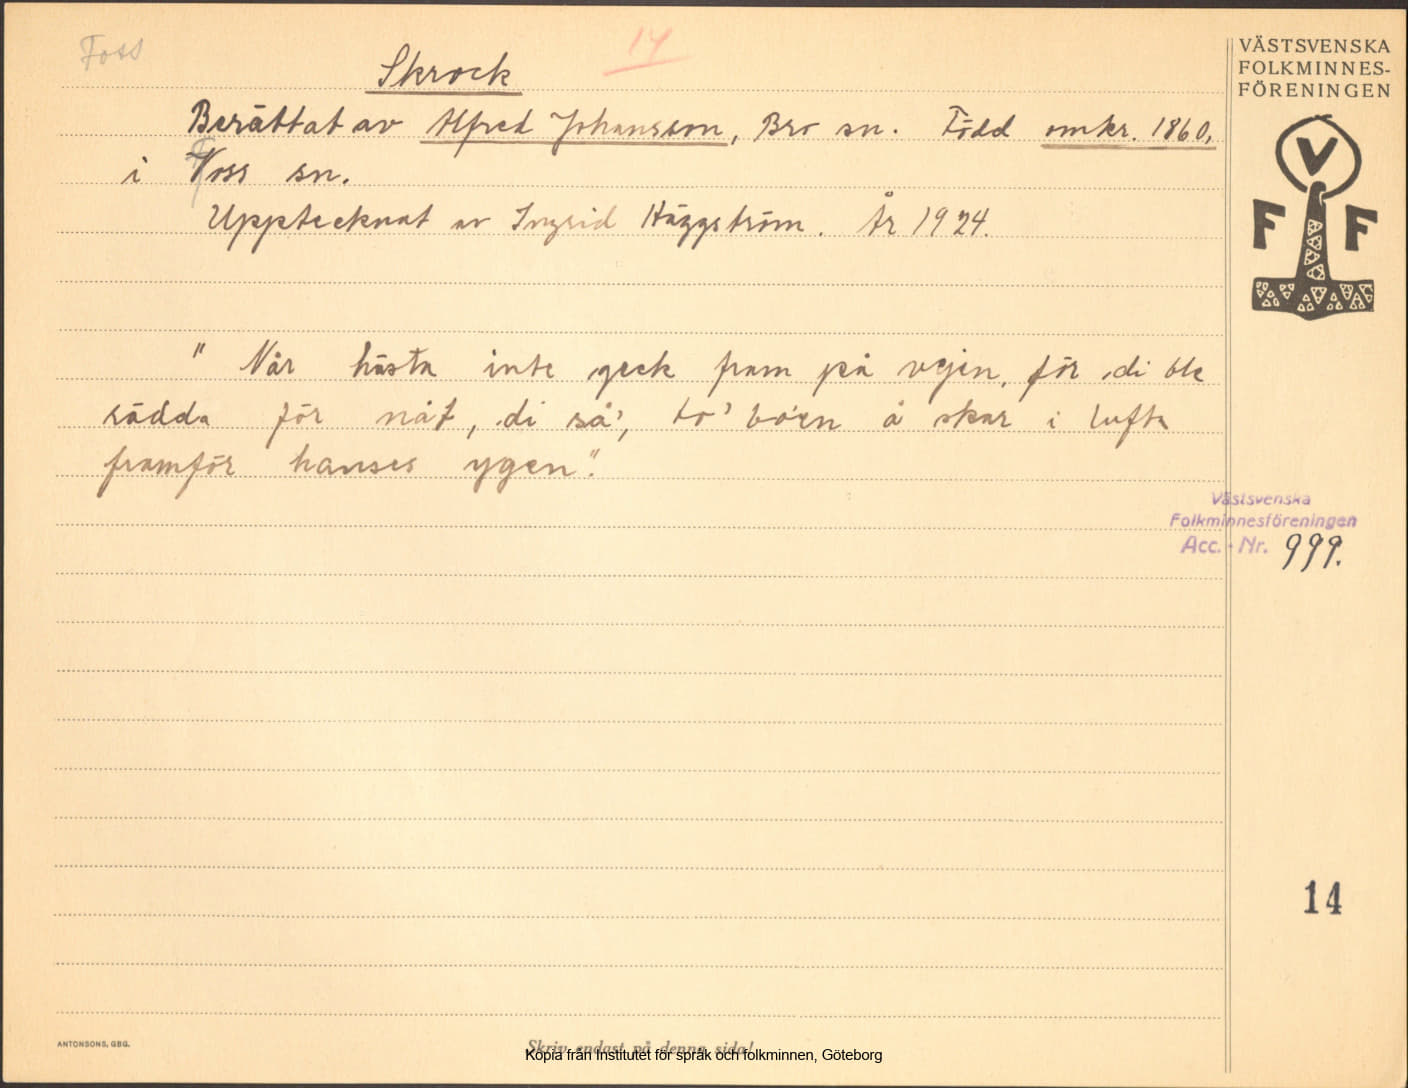 Foss
14
Skrock
Berättat av Alfred Johansson, Bro sn. Född omkr. 1860,
i Foss sn.
Upptecknat av Ingrid Häggström. År 1924.
" Når hästa inte geck fram på vejen, för di ble
rädda för nåt, di så', to' bo'en å skar i lufta
framför hanses ygen".
VÄSTSVENSKA
FOLKMINNES-
FÖRENINGEN
V
F F
Västsvenska
Folkminnesföreningen
Acc. - Nr. 999.
14
ANTONSONS, GBG.
Skriv endast på denna sida!
Kopia från Institutet för språk och folkminnen, Göteborg